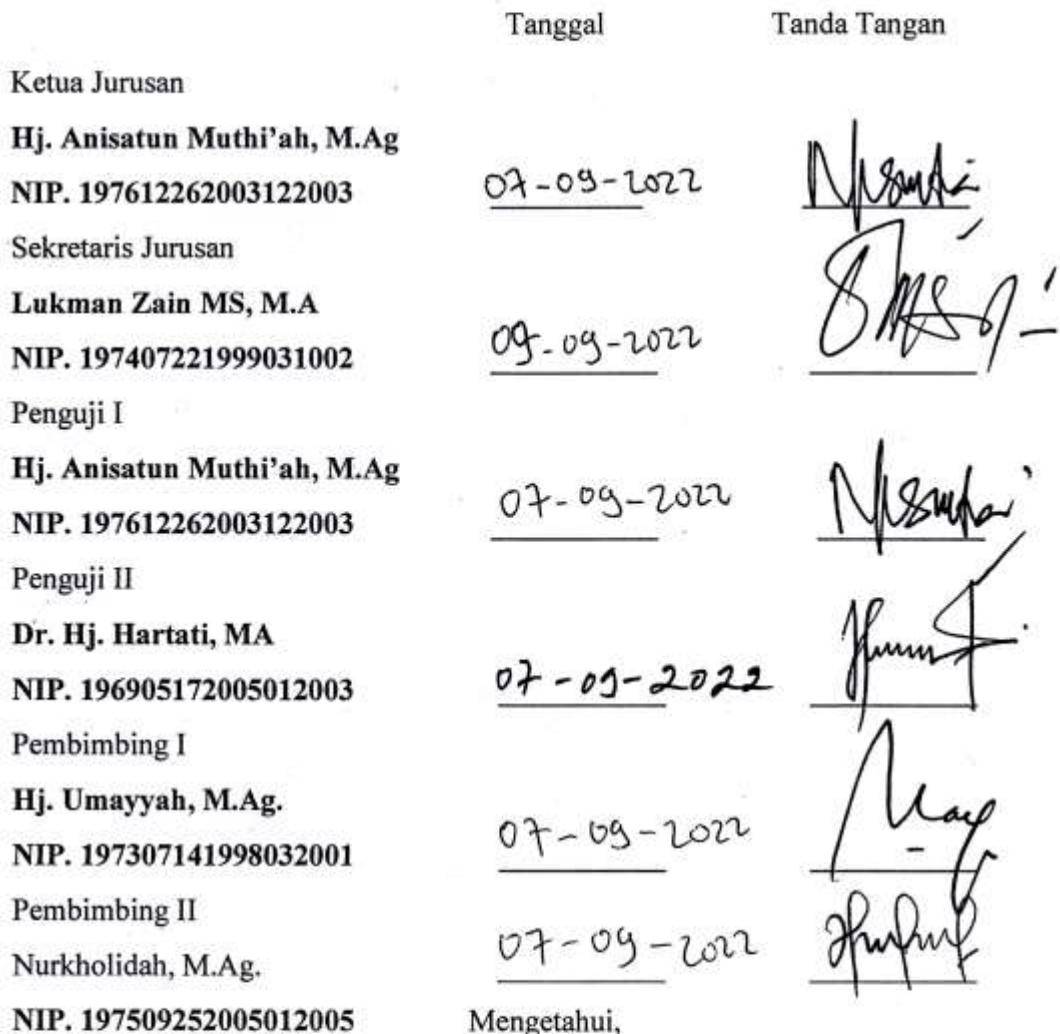 Tanggal Tanda Tangan
Ketua Jurusan
Hj. Anisatun Muthi'ah, M.Ag
NIP. 197612262003122003 07-09-2022
Sekretaris Jurusan
Lukman Zain MS, M.A
NIP. 197407221999031002 09-09-2022
Penguji I
Hj. Anisatun Muthi'ah, M.Ag
NIP. 197612262003122003 07-09-2022
Penguji II
Dr. Hj. Hartati, MA
NIP. 196905172005012003 07-09-2022
Pembimbing I
Hj. Umayyah, M.Ag.
NIP. 197307141998032001 07-09-2022
Pembimbing II
Nurkholidah, M.Ag. 07-09-2022
NIP. 197509252005012005 Mengetahui,